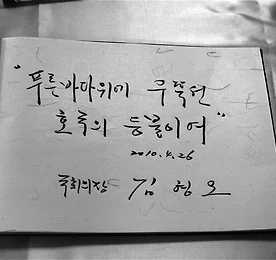 "푸른바다위에 우뚝선
호국의 등불이여"
2010.4.26
국회의장 김형오